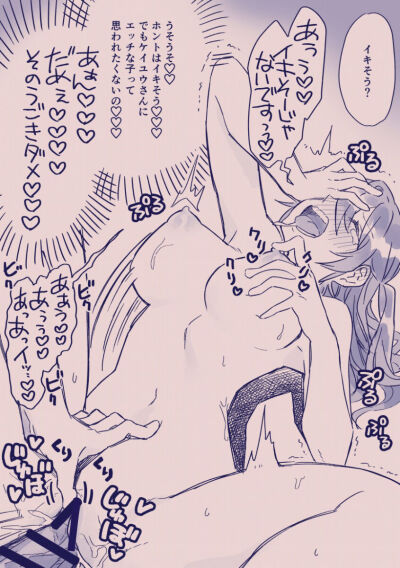 イキそう?
あっう♡♡
イキそーじゃ
ないですっっ♡
うそうそ♡♡
ホントはイキそう♡♡♡
でもケイユウさんに
エッチな子って
思われたくないの♡♡♡
あぁん♡♡♡
だめぇ♡♡♡♡
そのうごきダメ♡♡♡♡
ぷる
ぷる
ぷる
クリ♡
クリ♡
クリ♡
ビク
ビク
ビク
あぁう♡♡
あぅぅ♡♡
あっあっイッ…♡
ぐり
ぐり
じゅぼ
じゅぼ
ぷる
ぷる